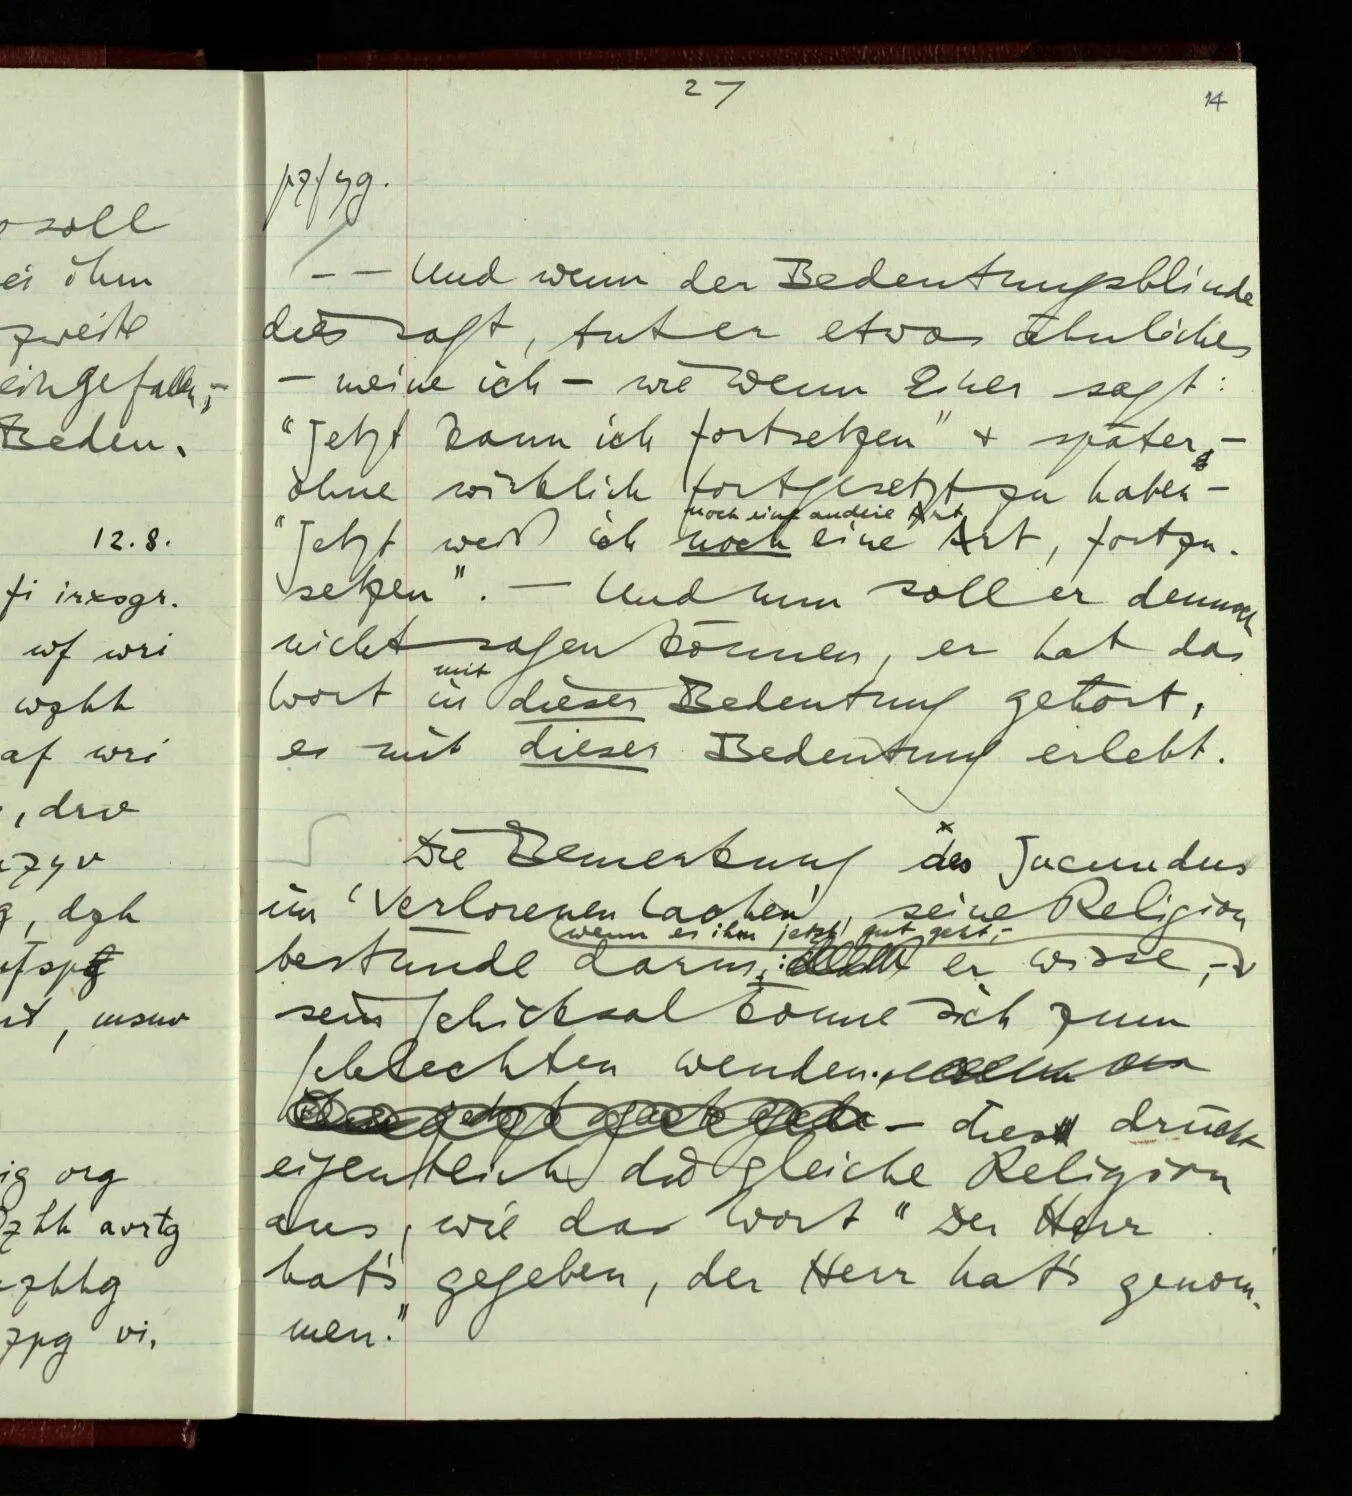 27
14
o soll
ei ihm
zweite
eingefallen,–
Beden.
12.8.
fi irxogr.
wf wri
wzhh
af wri
, drv
g, dzh
, msnv
ig org
zhh avrtg
zhhg
zpg vi.
pzfyg.
– – Und wenn der Bedeutungsblinde
dies sagt, tut er etwas ähnliches
– meine ich – wie wenn Einer sagt:
“Jetzt kann ich fortsetzen” + später, –
ohne wirklich fortgesetzt zu haben –
noch eine andere Art
“Jetzt weiß ich noch eine Art, fortzu-
setzen”. – Und nun soll er dennoch
nicht sagen können, er hat das
mit
Wort in dieser Bedeutung gehört,
es mit dieser Bedeutung erlebt.
Die Bemerkung des Jucundus
im ‘Verlorenen Lachen’, seine Religion
wenn es ihm jetzt gut geht, –
bestünde darin: er wisse, –
sein Schicksal könne sich zum
Schlechten wenden.
– dies drückt
eigentlich die gleiche Religion
aus, wie das Wort “Der Herr
hat's gegeben, der Herr hat's genom-
men.”